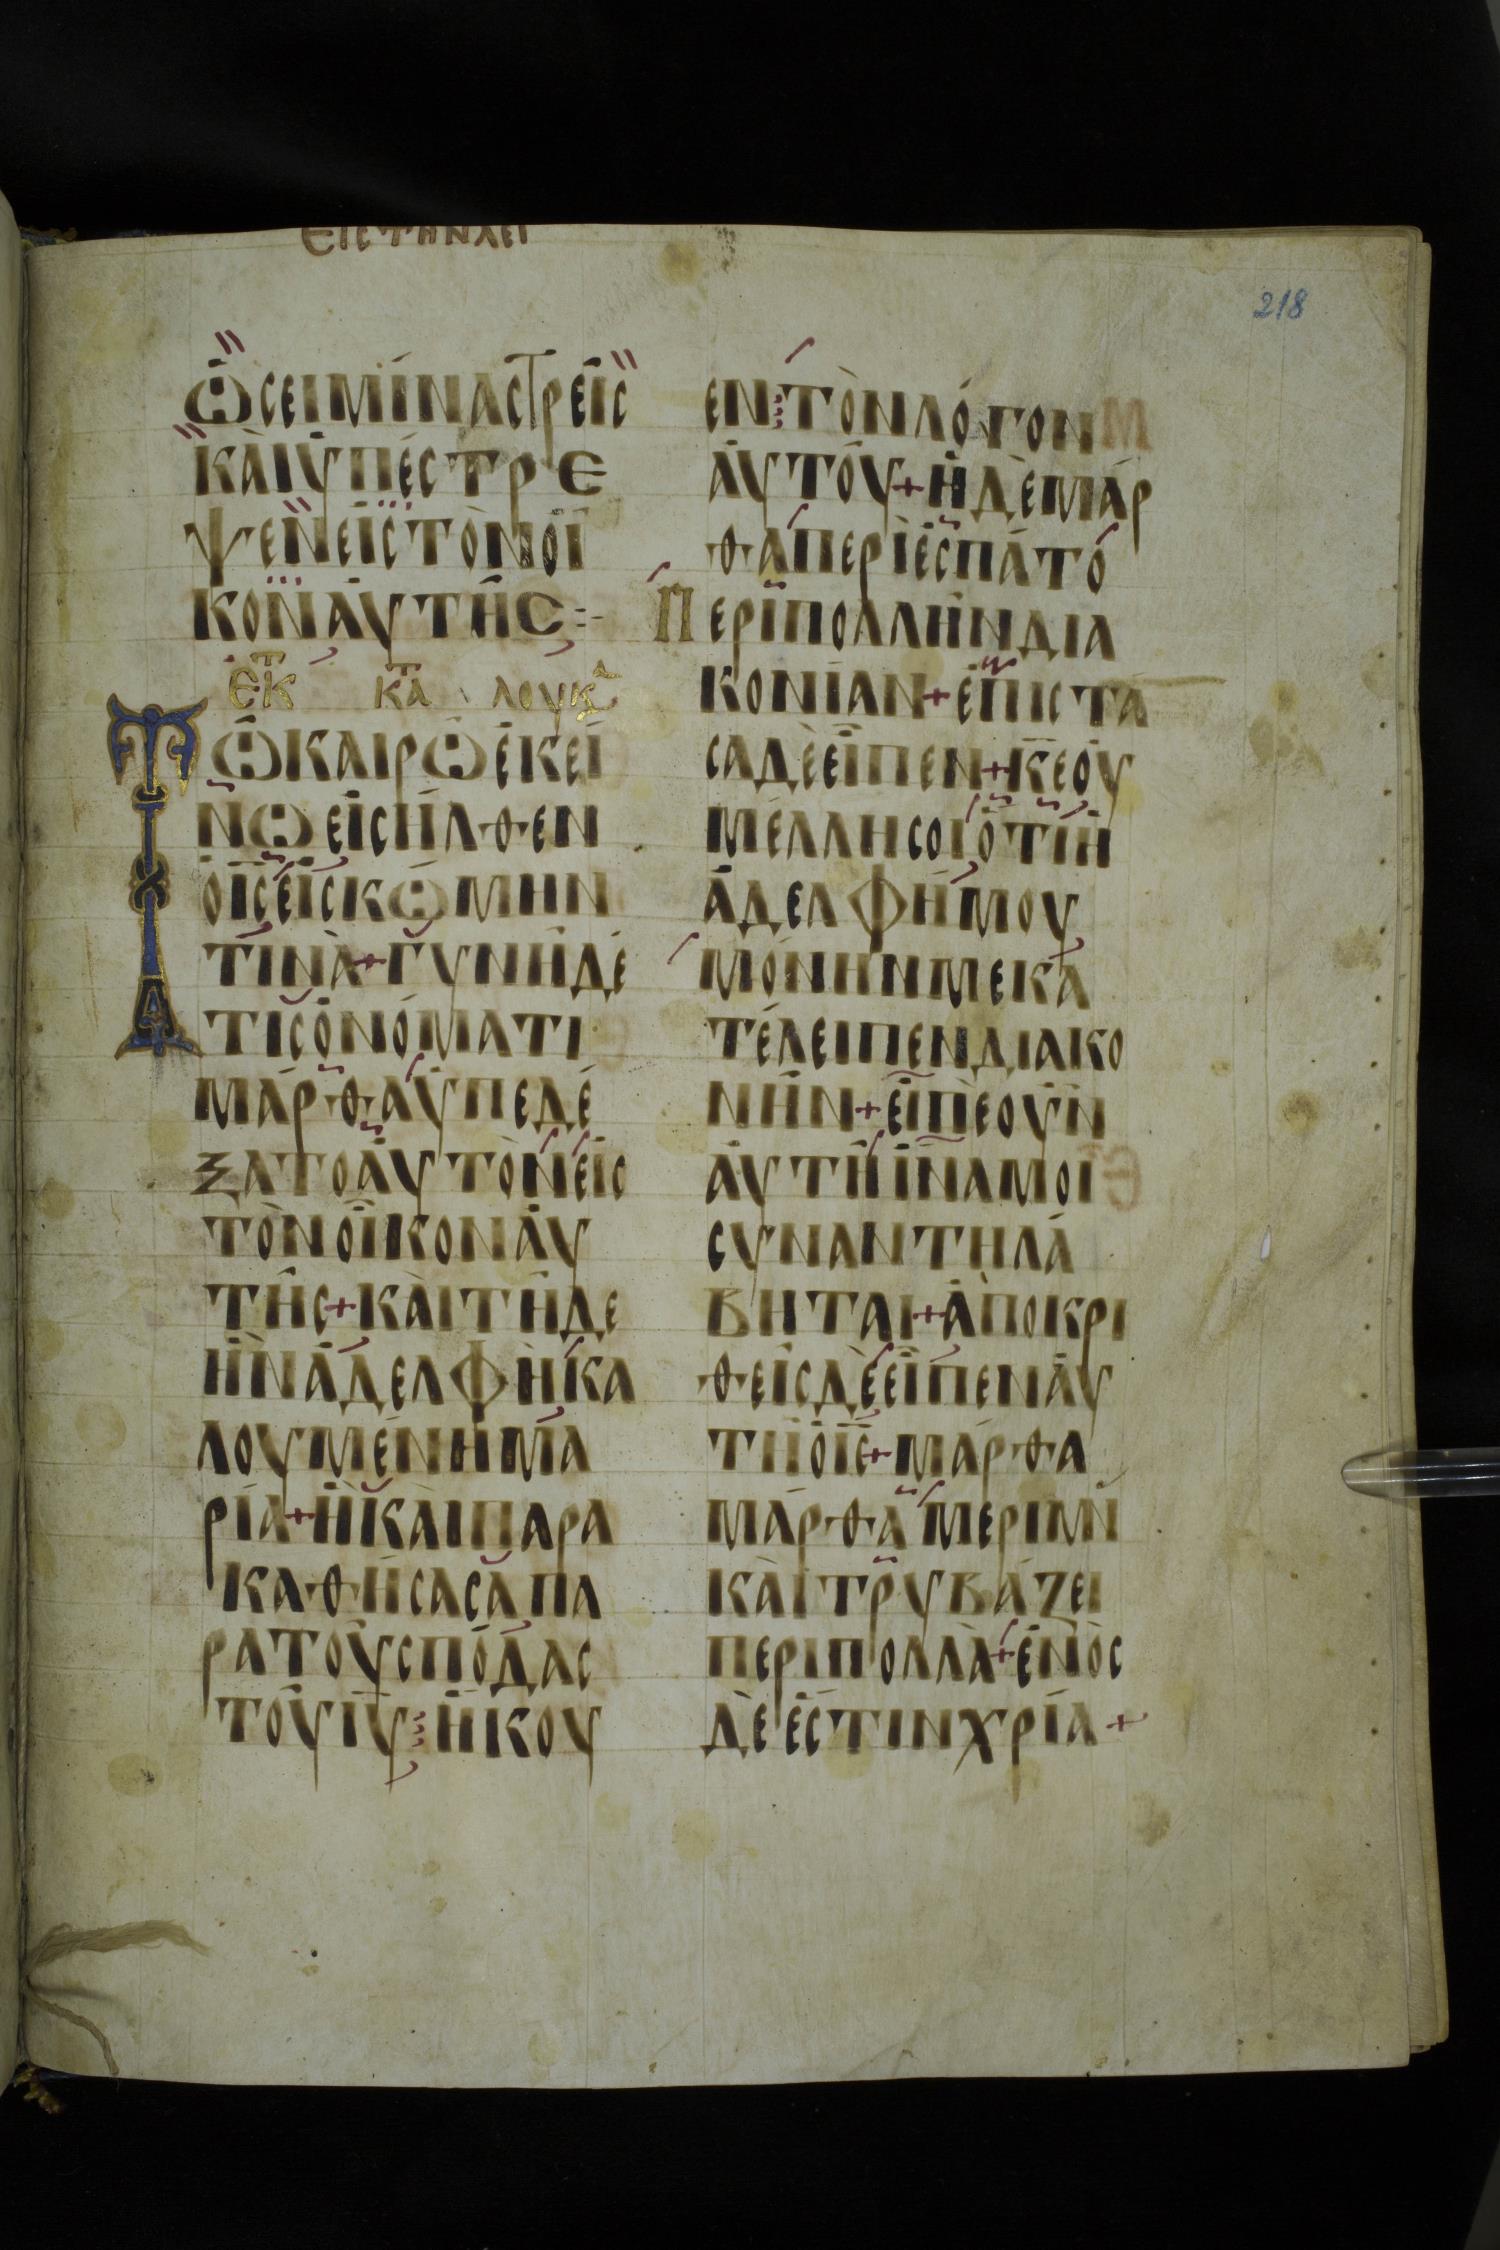 ΕΙCΤΗΝΛΕΙ
218
ὩCΕΙΜΊΝΑCΤΡΕΙ͂C
ΚΑῚΥ̓ΠΈCΤΡΕ
ΨΕΝΕἸCΤῸΝΟἾ
ΚΟΝΑΥ̓ΤΗ͂C:-
ἘΚ ΚΑΤΑ ΛΟΥΚ
ΤῺΚΑΙΡΩἘΚΕΊ
ΝΩΕἸCΗ͂ΛΘΕΝ
ὉΙC̅ΕἸCΚΏΜΗΝ
ΤΙΝᾺ+ΓΥΝῊΔΈ
ΤΙCὈΝΌΜΑΤΙ
ΜΆΡΘΑὙΠΕΔΈ
ΞΑΤΟΑΥ̓ΤῸΝΕἸC
ΤῸΝΟἾΚΟΝΑΥ̓
ΤΗ͂C+ΚΑῚΤΗ͂ΔΕ
ἮΝἈΔΕΛΦῊΚΑ
ΛΟΥΜΈΝΗΜΑ
ΡΊΑ+ἫΚΑῚΠΑΡΑ
ΚΑΘΉCΑCΑΠΑ
ΡΑΤΟῪCΠΌΔΑC
ΤΟΥ͂ΙΥ̅ἬΚΟΥ
ΕΝΤῸΝΛΌΓΟΝ
ΑΥ̓ΤΟΥ͂+ἩΔῈΜΆΡ
ΘΑΠΕΡΙΕCΠΑ͂ΤΟ
ΠΕΡῚΠΟΛΛῊΝΔΙΑ
ΚΟΝΊΑΝ+ἘΠΙCΤΑ͂
CΑΔῈΕἾΠΕΝ+Κ̅Ε̅ΟΥ̓
ΜΈΛΛΗCΟΙὍΤΙἩ
ἈΔΕΛΦΉΜΟΥ
ΜΌΝΗΝΜΕΚΑ
ΤΈΛΕΙΠΕΝΔΙΑΚΟ
ΝΗ͂Ν+ΕἸΠῈΟΥ̓͂Ν
ΑΥ̓ΤΗ͂ἽΝΑΜΟΙ
CΥΝΑΝΤΗΛΆ
ΒΗΤΑΙ+ἈΠΟΚΡΙ
ΘΕῚCΔῈΕἾΠΕΝΑΥ̓
ΤΗ͂ὉΙC̅+ΜΆΡΘΑ
ΜΆΡΘΑΜΕΡΙΜΝ
ΚΑῚΤΡΥΒΆΖΕΙ
ΠΕΡΙΠΟΛΛᾺ+ἙΝῸC
ΔῈἘCΤΙΝΧΡΊΑ+